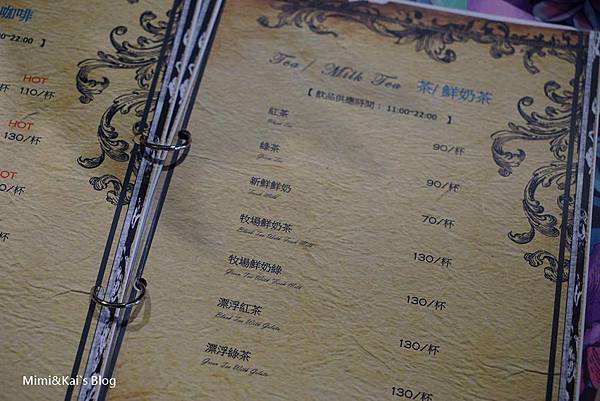 咖啡
22:00 】
HOT
110/杯
HOT
130/杯
HOT
/杯
/杯
Tea / Milk Tea 茶/鮮奶茶
【 飲品供應時間： 11:00~22:00 】
紅茶 90/杯
Black Tea
綠茶 90/杯
Green Tea
新鮮鮮奶 70/杯
Fresh Milk
牧場鮮奶茶 130/杯
Black Tea With Fresh Milk
牧場鮮奶綠 130/杯
Green Tea With Fresh Milk
漂浮紅茶 130/杯
Black Tea With Gelato
漂浮綠茶 130/杯
Green Tea With Gelato
Mimi&Kai's Blog